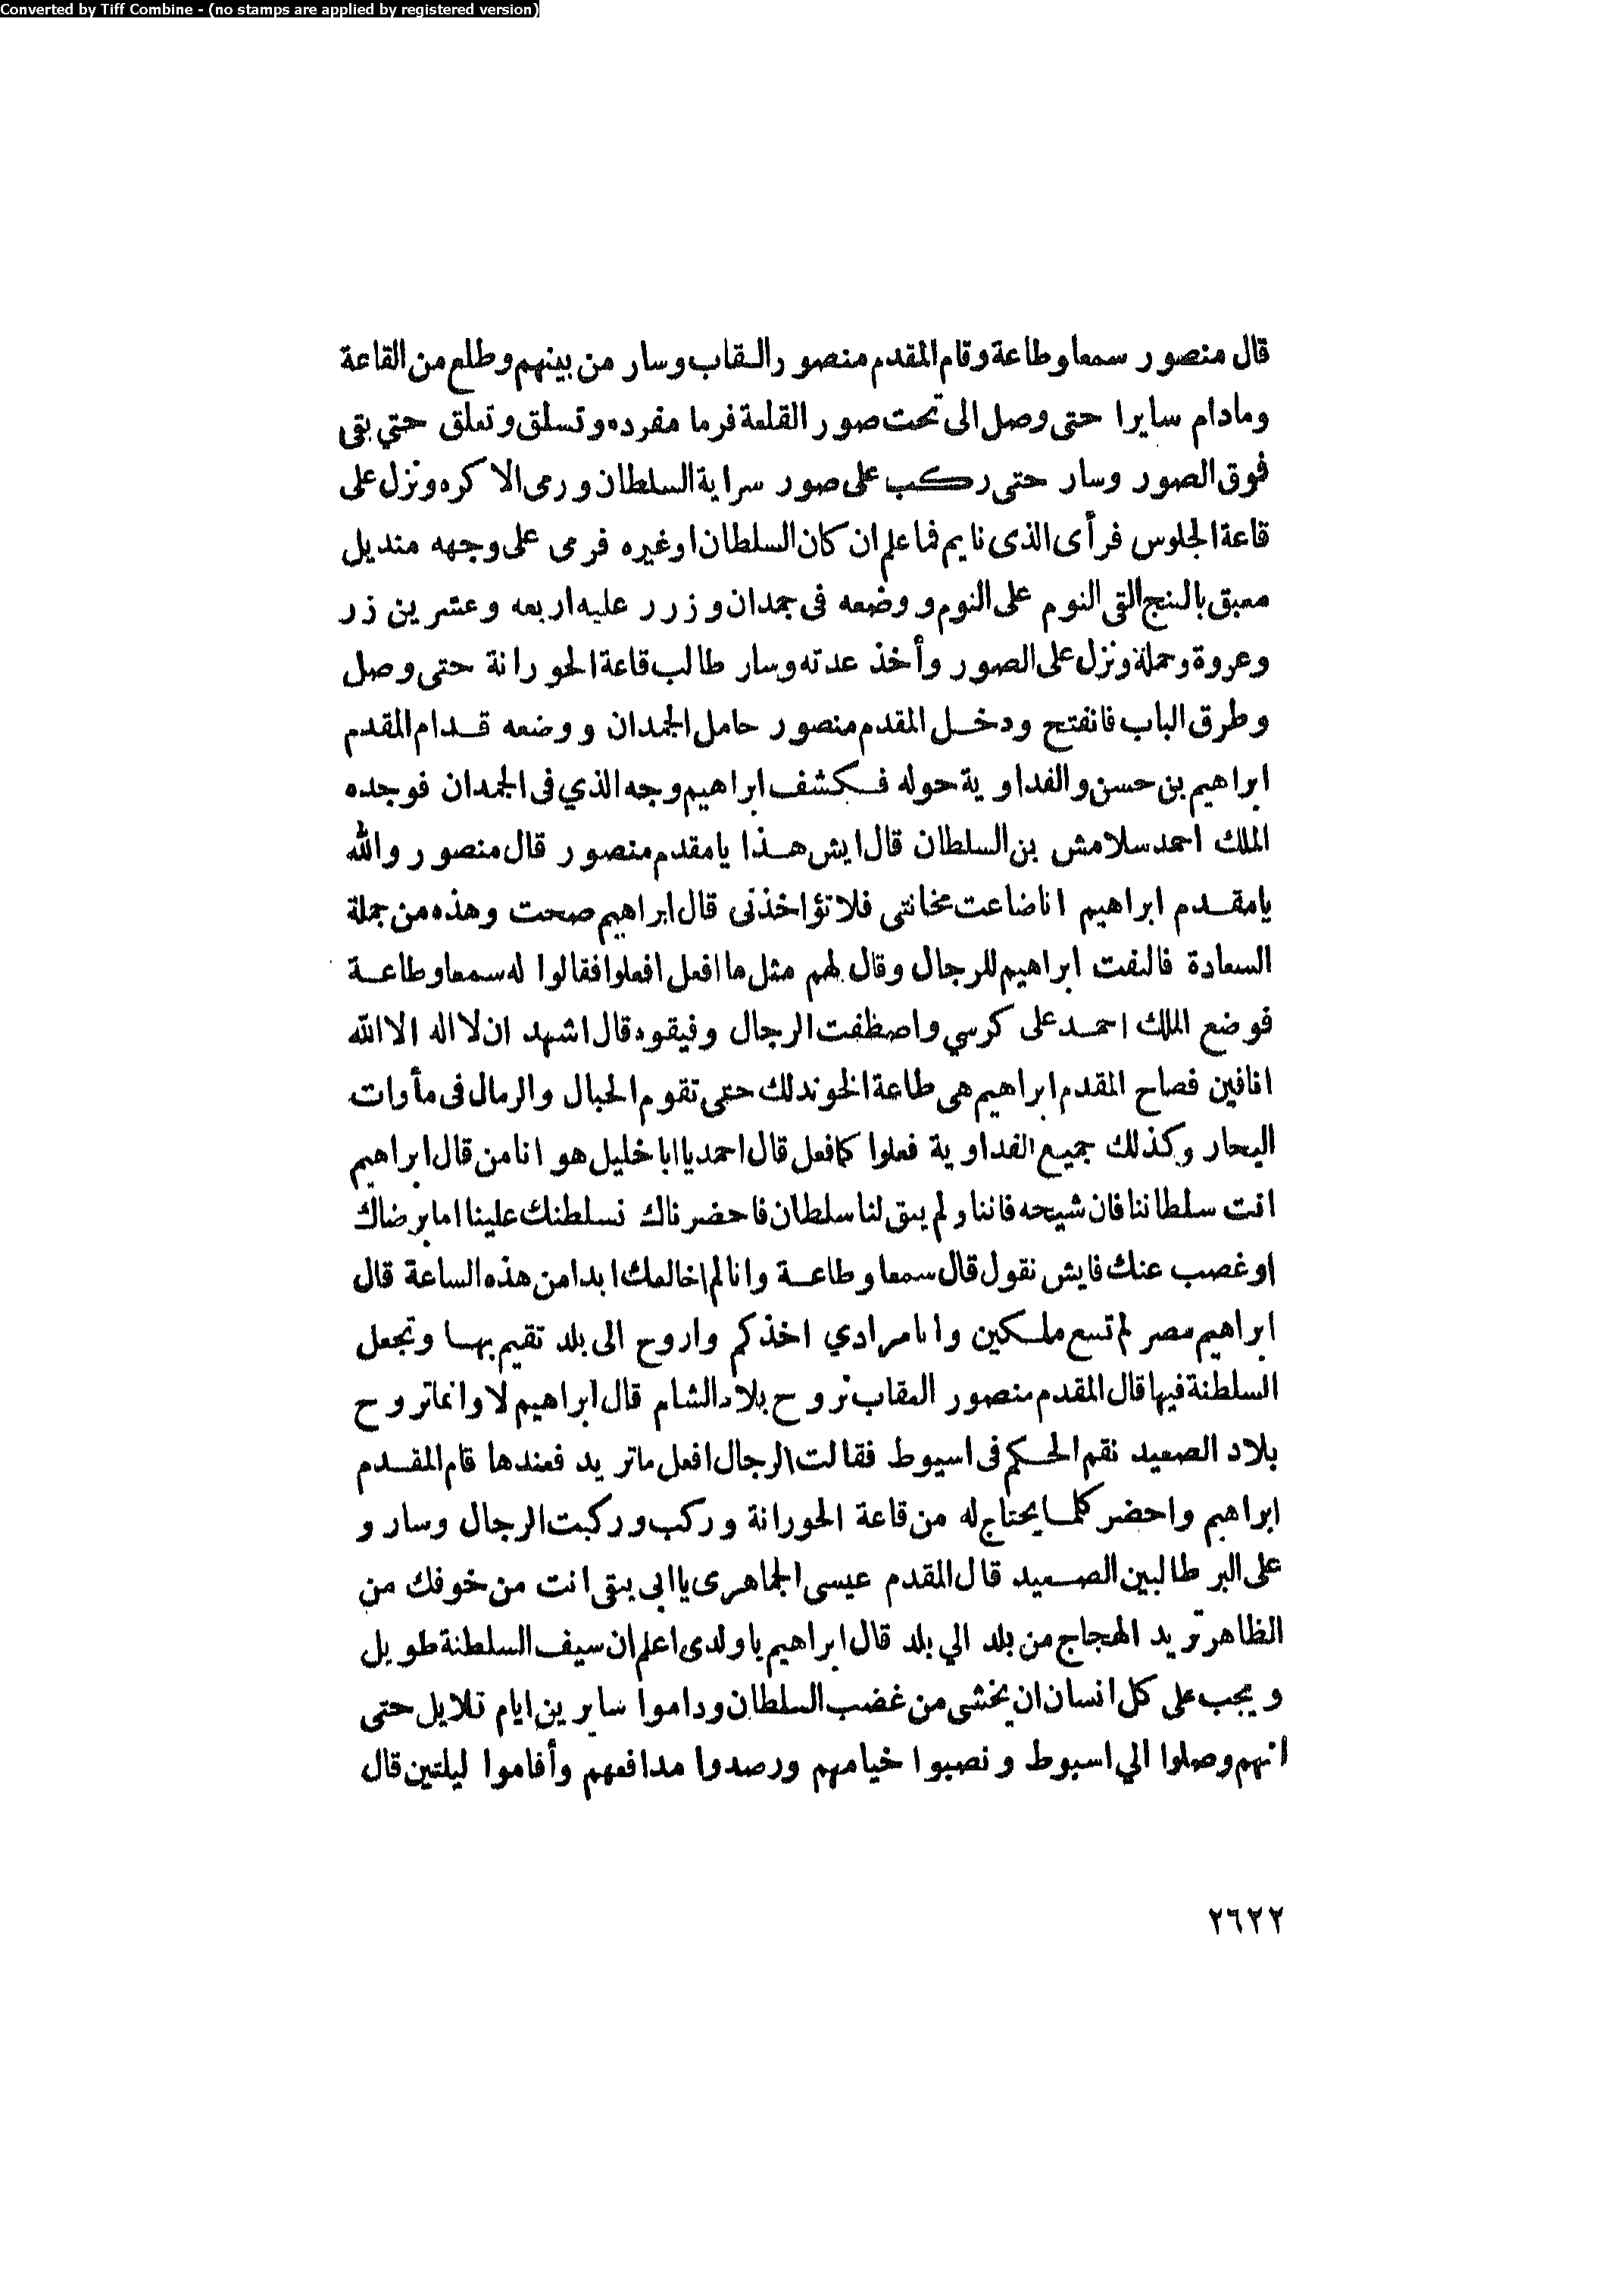 Converted by Tiff Combine - (no stamps are applied by registered version)
قال منصور سمعا وطاعة وقام المقدم منصور العقاب وسار من بينهم وطلع من القاعة
ومادام سايرا حتى وصل الى تحت صور القلعة فرما مفرده وتسلق وتعلق حتي بقى
فوق الصور وسار حتى ركب على صور سراية السلطان ورمى الاكره ونزل على
قاعة الجلوس فرأى الذى نايم فما علم ان كان السلطان اوغيره فرمى على وجهه منديل
معبق بالبنج التى النوم على النوم ووضعه فى جمدان وزرر عليه اربعه وعشرين زر
وعروة وحملة ونزل على الصور وأخذ عدته وسار طالب قاعة الحورانة حتى وصل
وطرق الباب فانفتح ودخل المقدم منصور حامل الجمدان ووضعه قدام المقدم
ابراهيم بن حسن والفداوية حوله فكشف ابراهيم وجه الذي فى الجمدان فوجده
الملك احمد سلامش بن السلطان قال ايش هذا يامقدم منصور قال منصور والله
يامقدم ابراهيم انا ضاعت مخانتى فلا تؤاخذنى قال ابراهيم صحت وهذه من جملة
السعادة فالتفت ابراهيم للرجال وقال لهم مثل ما افعل افعلوا فقالوا له سمعا وطاعة
فوضع الملك احمد على كرسي واصظفت الرجال وفيقوه قال اشهد ان لا اله الا الله
انا فين فصاح المقدم ابراهيم هى طاعة الخوند لك حتى تقوم الجبال والرمال فى مأوات
البحار وكذلك جميع الفداوية فعلوا كما فعل قال احمد يا ابا خليل هو انا من قال ابراهيم
انت سلطاننا فان شيحه فاننا ولم يبق لنا سلطان فاحضرناك نسلطنك علينا اما برضاك
اوغصب عنك فايش نقول قال سمعا وطاعة وانا لم اخالفك ابدا من هذه الساعة قال
ابراهيم مصر لم تسع ملكين وانا مرادي اخذكم واروح الى بلد تقيم بها وتجعل
السلطنة فيها قال المقدم منصور العقاب نروح بلاد الشام قال ابراهيم لا وانما تروح
بلاد الصعيد نقم الحكم فى اسيوط فقالت الرجال افعل ماتريد فعندها قام المقدم
ابراهيم واحضر كلما يحتاج له من قاعة الحورانة وركب وركبت الرجال وسار و
على البر طالبين الصعيد قال المقدم عيسى الجماهرى يا ابى يبقى انت من خوفك من
الظاهر تريد الهجاج من بلد الي بلد قال ابراهيم ياولدى اعلم ان سيف السلطنة طويل
ويجب على كل انسان ان يخشى من غضب السلطان وداموا سايرين ايام تلايل حتى
انهم وصلوا الي اسيوط ونصبوا خيامهم ورصدوا مدافعهم وأقاموا ليلتين قال
٢٦٢٢